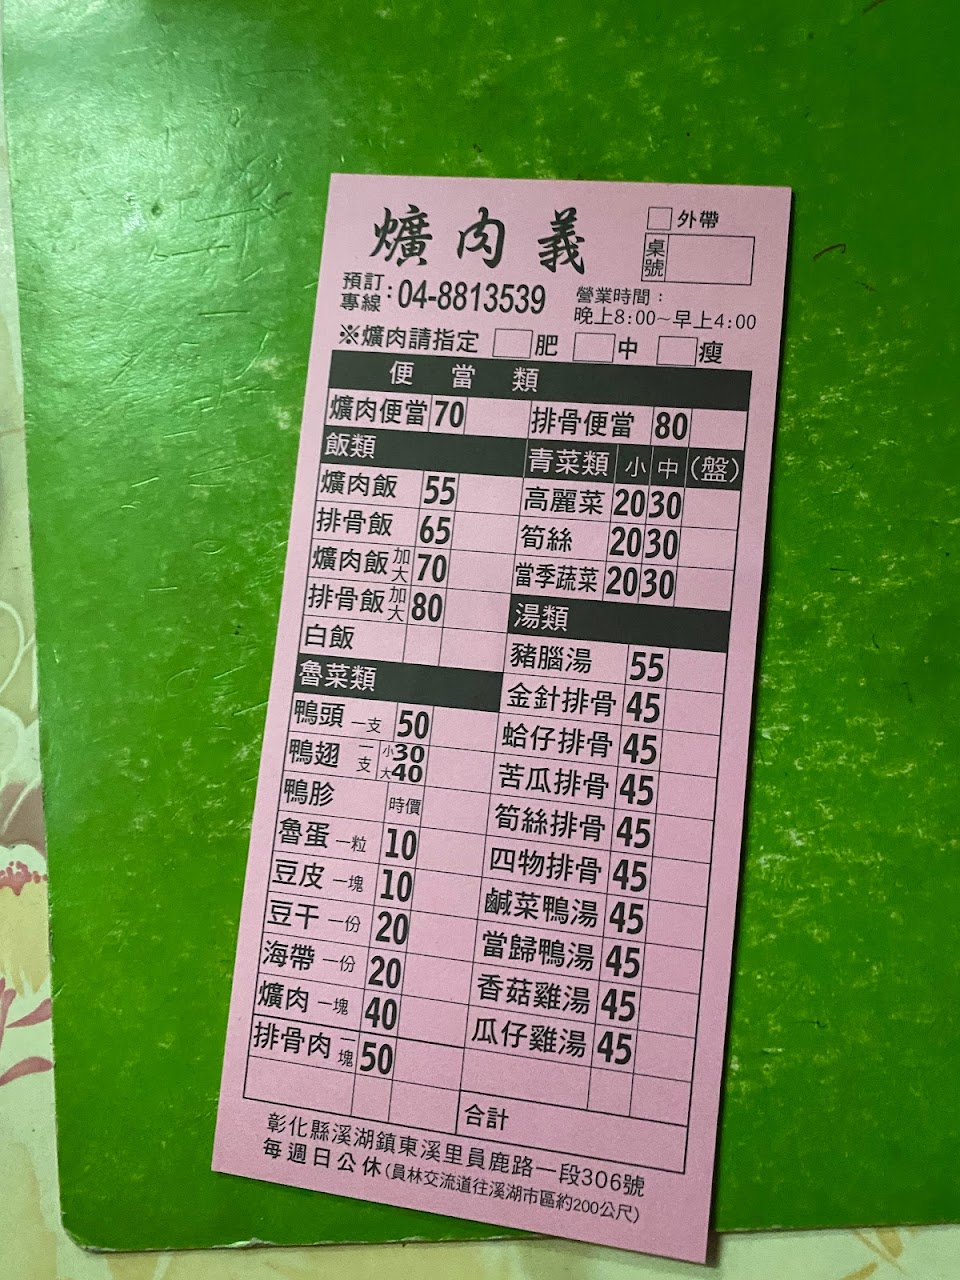 爌肉義
外帶
桌號
預訂專線:04-8813539
營業時間:
晚上8:00~早上4:00
※爌肉請指定 肥 中 瘦
便當類
爌肉便當 70
排骨便當 80
飯類
爌肉飯 55
排骨飯 65
爌肉飯加大 70
排骨飯加大 80
白飯
魯菜類
鴨頭 一支 50
鴨翅 一支 小30 大40
鴨胗 時價
魯蛋 一粒 10
豆皮 一塊 10
豆干 一份 20
海帶 一份 20
爌肉 一塊 40
排骨肉 一塊 50
青菜類 小 中 (盤)
高麗菜 20 30
筍絲 20 30
當季蔬菜 20 30
湯類
豬腦湯 55
金針排骨 45
蛤仔排骨 45
苦瓜排骨 45
筍絲排骨 45
四物排骨 45
鹹菜鴨湯 45
當歸鴨湯 45
香菇雞湯 45
瓜仔雞湯 45
合計
彰化縣溪湖鎮東溪里員鹿路一段306號
每週日公休(員林交流道往溪湖市區約200公尺)